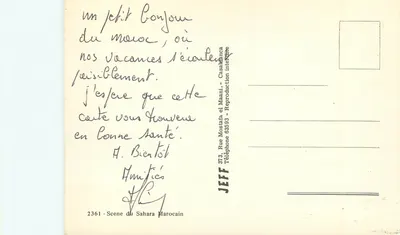 un petit bonjour
du maroc, où
nos vacances s'écoulent
paisiblement.
j'espère que cette
carte vous trouvera
en bonne santé.
A. Bientôt
Amitiés
2361 - Scene du Sahara Marocain
JEFF 373, Rue Mostafa el Maani. - Casablanca
Téléphone 63593 - Reproduction interdite